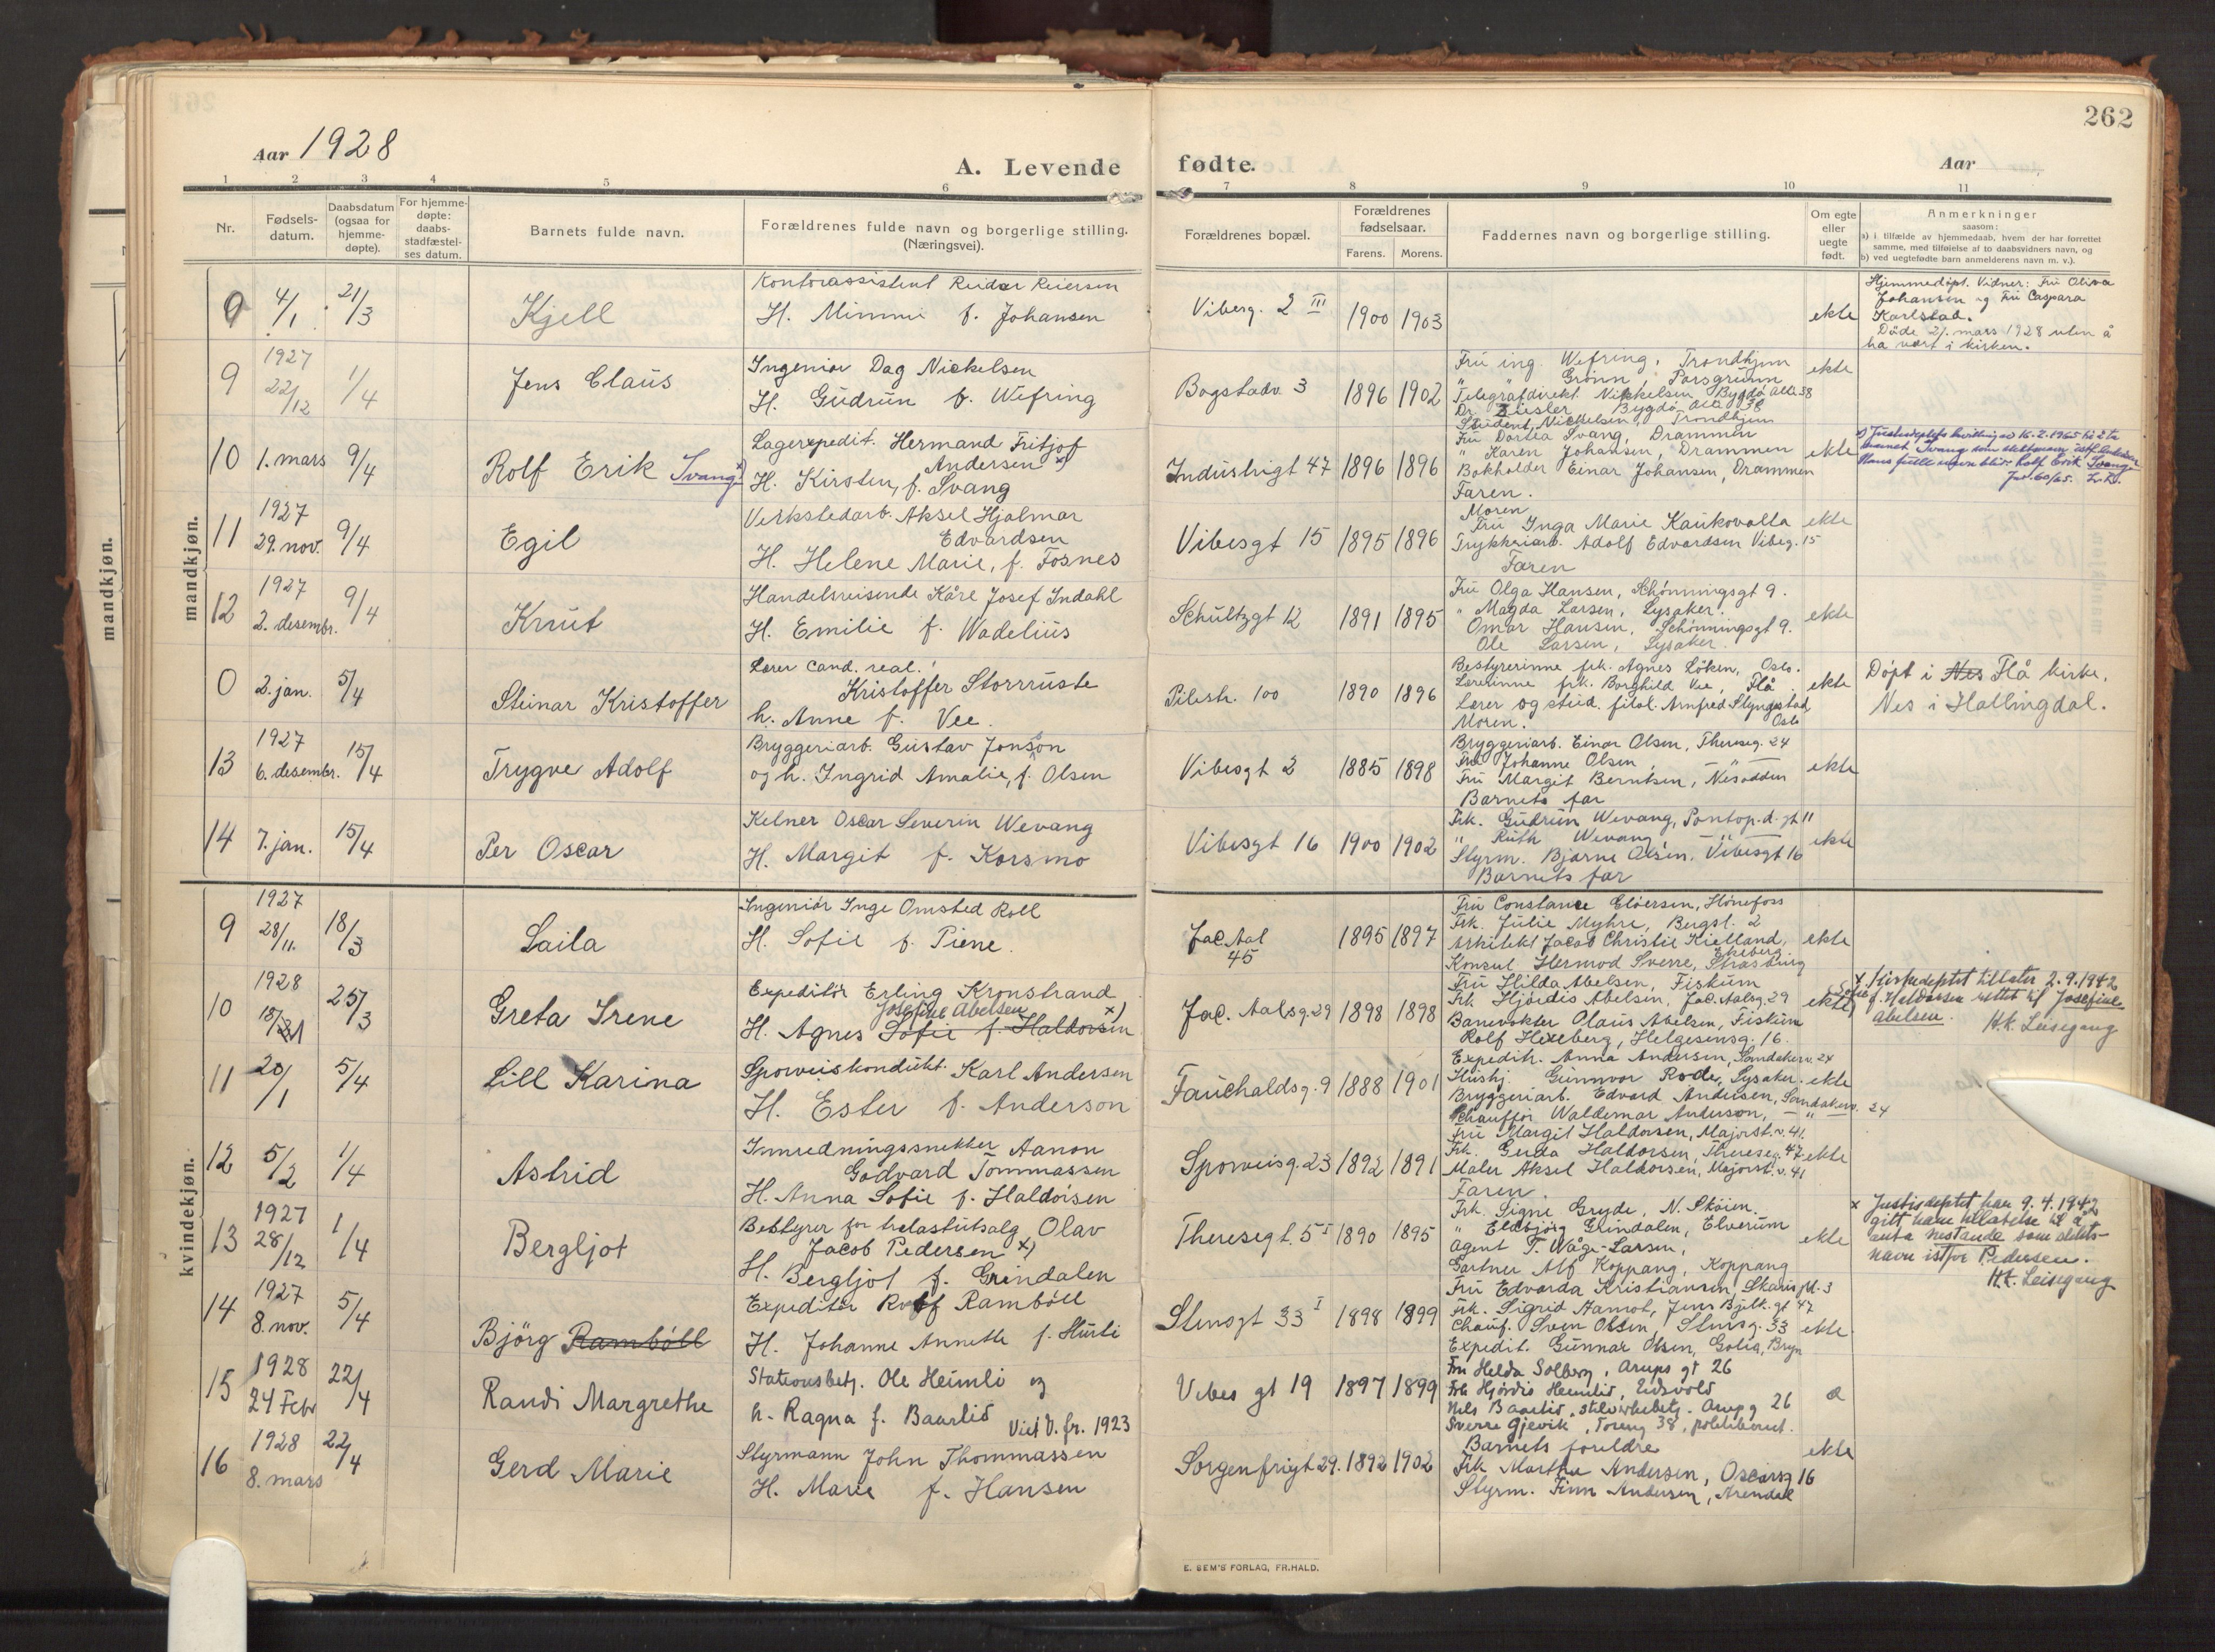 262
Aar 1928
A. Levende fødte.
Aar
1 2 3 4 5 6 7 8 9 10 11
Nr.
Fødsels-
datum.
Daabsdatum
(ogsaa for
hjemme-
døpte).
For hjemme-
døpte:
daabs-
stadfæstel-
ses datum.
Barnets fulde navn.
Forældrenes fulde navn og borgerlige stilling.
(Næringsvei).
Forældrenes bopæl.
Forældrenes
fødselsaar.
Farens. Morens.
Faddernes navn og borgerlige stilling.
Om egte
eller
uegte
født.
Anmerkninger
saasom:
a) i tilfælde av hjemmedaab, hvem der har forrettet
samme, med tilføielse af to daabsvidners navn, og
b) ved uegtefødte barn anmelderens navn m. v.).
mandkjøn.
mandkjøn.
0 4/1 21/3
Kjell
Kontorassistent Reidar Reiersen
H. Mimmi f. Johansen
Vibesg. 2 III
1900 1903
ekte
Hjemmedøpt. Vidner: Fru Oliva
Johansen og Fru Caspara
Karlstad.
Døde 21. mars 1928 uten å
ha vært i kirken.
9 1927 22/12 1/4
Jens Claus
Ingeniør Dag Nickelsen
H. Gudrun f. Wefring
Bogstadv. 3
1896 1902
Fru ing. Wefring, Trondhjem
" " Grönn, Porsgrunn
Telegrafdirekt. Nickelsen Bygdö Allé 38
Dr. Bygdö Allé 38
Student Nickelsen, Trondhjem
ekte
10 1. mars 9/4
Rolf Erik Svang x)
Lagerexpedit. Hermand Fritjof
Andersen x)
H. Kirsten, f. Svang
Industrigt 47
1896 1896
Fru Dortea Svang, Drammen
" Karen Johansen, Drammen
Bokholder Einar Johansen, Drammen
Faren.
ekte
x) Justisdeptets bevilling av 16.2.1965 til å ta
navnet Svang som slektsnavn istf. Andersen
Hans fulle navn blir: Rolf Erik Svang
Jnr. 60/65.
11 1927 29. nov. 9/4
Egil
Verkstedarb. Aksel Hjalmar
Edvardsen
H. Helene Marie, f. Fosnes
Vibesgt 15
1895 1896
Moren
Fru Inga Marie Kaukovalta
Trykkeriarb. Adolf Edvardsen Vibeg. 15
Faren
ekte
12 1927 2. desembr. 9/4
Knut
Handelsreisende Kåre Josef Indahl
H. Emilie f. Wadelius
Schultzgt 12
1891 1895
Fru Olga Hansen, Schønningsgt 9.
" Magda Larsen, Lysaker.
Omar Hansen, Schønningsgt 9.
Ole Larsen, Lysaker.
ekte
0 2. jan. 5/4
Steinar Kristoffer
Lærer cand. real.
Kristoffer Storruste
h. Anne f. Vee.
Pilestr. 100
1890 1896
Bestyrerinne frk. Agnes Löken, Oslo.
Lærerinne frk. Borghild Vee, Flå
Lærer og stud. filol. Arnfred Slyngstad,
Oslo
Moren.
ekte
Döpt i Nes Flå kirke,
Nes i Hallingdal.
13 1927 6. desembr. 15/4
Trygve Adolf
Bryggeriarb. Gustav Jonson
og h. Ingrid Amalie, f. Olsen
Vibesgt 2
1885 1898
Bryggeriarb. Einar Olsen, Thereseg. 24
Fru Johanne Olsen, — " —
Fru Margit Berntsen, Nesodden
Barnets far
ekte
14 7. jan. 15/4
Per Oscar
Kelner Oscar Severin Wevang
H. Margit f. Korsmo
Vibesgt 16
1900 1902
Frk. Gudrun Wevang, Pontop.d. gt 11
" Ruth Wevang — " —
Styrm. Bjarne Olsen, Vibesgt 16
Barnets far
ekte
kvindekjøn.
9 1927 28/11. 18/3
Laila
Ingeniør Inge Omsted Roll
H. Sofie f. Piene.
Jac. Aal
45
1895 1897
Fru Constance Gløersen, Hönefoss
Frk. Julie Myhre, Bergsl. 2
Arkitekt Jacob Christie Kielland,
Ekeberg
Konsul Hermod Sverre, Strasburg
ekte
10 1928 18/1 25/3
Greta Irene
Expeditör Erling Kronstrand
Josefine Abelsen x)
H. Agnes Sofie f. Haldorsen
Jac. Aalsg. 29
1898 1898
Fru Hilda Abelsen, Fiskum
Frk. Hjördis Abelsen, Jac. Aalsg. 29
Banevokter Olaus Abelsen, Fiskum
Rolf Hexeberg, Helgesensg. 16.
ekte
x Kirkedeptet tillater 2.9.1942
Sofie f. Haldorsen rettet til Josefine
Abelsen.
H.k. Leisegang
11 20/1 5/4
Lill Karina
Sporveiskondukt. Karl Andersen
H. Ester f. Anderson
Fauchaldsg. 9
1888 1901
Expeditr. Anna Andersen, Sandakerv. 24
Hushj. Gunnvor Rode, Lysaker.
Bryggeriarb. Edvard Andersen, Sandakerv. 24
Chauffør Waldemar Anderson, — " —
ekte
12 5/2 1/4
Astrid
Innredningssnekker Aanon
Godvard Tommassen
H. Anna Sofie f. Haldorsen
Sporveisg. 23
1892 1891
Fru Margit Haldorsen, Majorst.v. 41.
Frk. Gerda Haldorsen, Thereseg. 47
Maler Aksel Haldorsen, Majorst.v. 41
Faren.
ekte
13 1927 28/12 1/4
Bergljot
Bestyrer for trelastutsalg Olav
Jacob Pedersen x)
H. Bergljot f. Grindalen
Theresegt. 5 I
1890 1895
Frk. Signe Gryde, N. Skøien.
" Eldbjørg Grindalen, Elverum
Agent T. Wåge-Larsen,
Gartner Alf Koppang, Koppang
ekte
x Justisdeptet har 9.4.1942
gitt ham tillatelse til å
anta Nestande som slekts-
navn istfor Pedersen.
H.k. Leisegang
14 1927 8. nov. 5/4
Björg Ramböll
Expeditör Rolf Ramböll
H. Johanne Annette f. Hurli
Stensgt 33 I
1898 1899
Fru Edvarda Kristiansen, Skarispl. 3
Frk. Sigrid Aamot, Jens Bjelk. gt 47
Chauf. Sven Olsen, Stensg. 33
Expedit. Gunnar Olsen, Golia, Bryn
ekte
15 1928 24 Febr 22/4
Randi Margrethe
Stationsbetj. Ole Heimli og
h. Ragna f. Baarlid
Viet V. fr. 1923
Vibes gt 19
1897 1899
Fru Helda Solberg, Arups gt 26
Frk Hjördis Heimlid, Eidsvold
Nils Baarlid, Arupg 26
Sverre Gjevik, Toreng 38, politibetjent.
e
16 1928 8. mars 22/4
Gerd Marie
Styrmann John Thommassen
H. Marie f. Hansen
Sorgenfrigt 29.
1892 1902
Barnets foreldre
Frk Martha Andersen, Oscarsg 16
Styrm. Finn Andersen, Arendal
ekte
E. SEM'S FORLAG, FR.HALD.